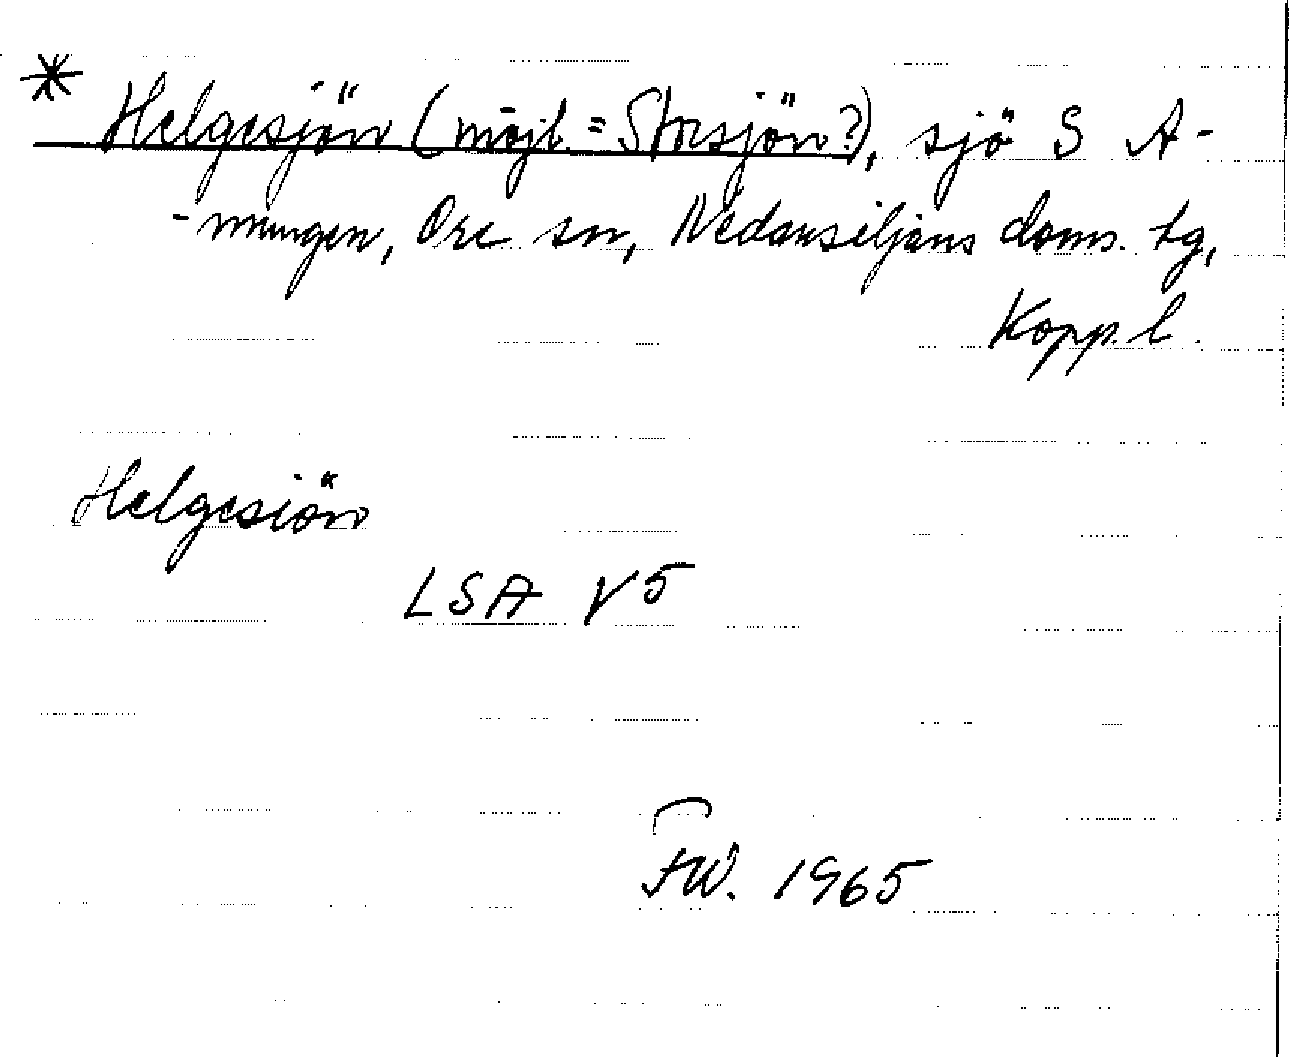 * Helgesjön (möjl. = Storsjön?), sjö S A-
-mungen, Ore sn, Nedansiljans doms. tg,
Kopp. l.
Helgesiön
LSA V5
FW. 1965